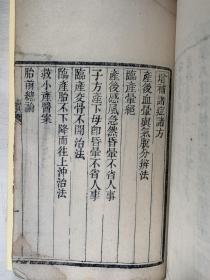 增補諸症諸方
產後血暈與氣脫分辨法
臨產暈絕
產後感風急然昏暈不省人事
子方產下母卽昏暈不省人事
臨產交骨不開治法
臨產胎不下降而往上沖治法
救小產醫案
胎前總論